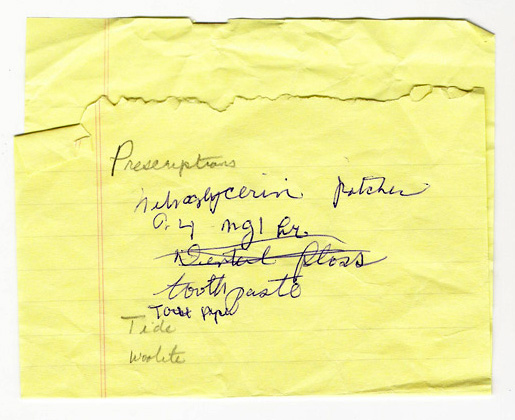 Prescriptions
nitroglycerin patches
0.4 mg/hr.
Dental floss
toothpaste
Toilet paper
Tide
Woolite